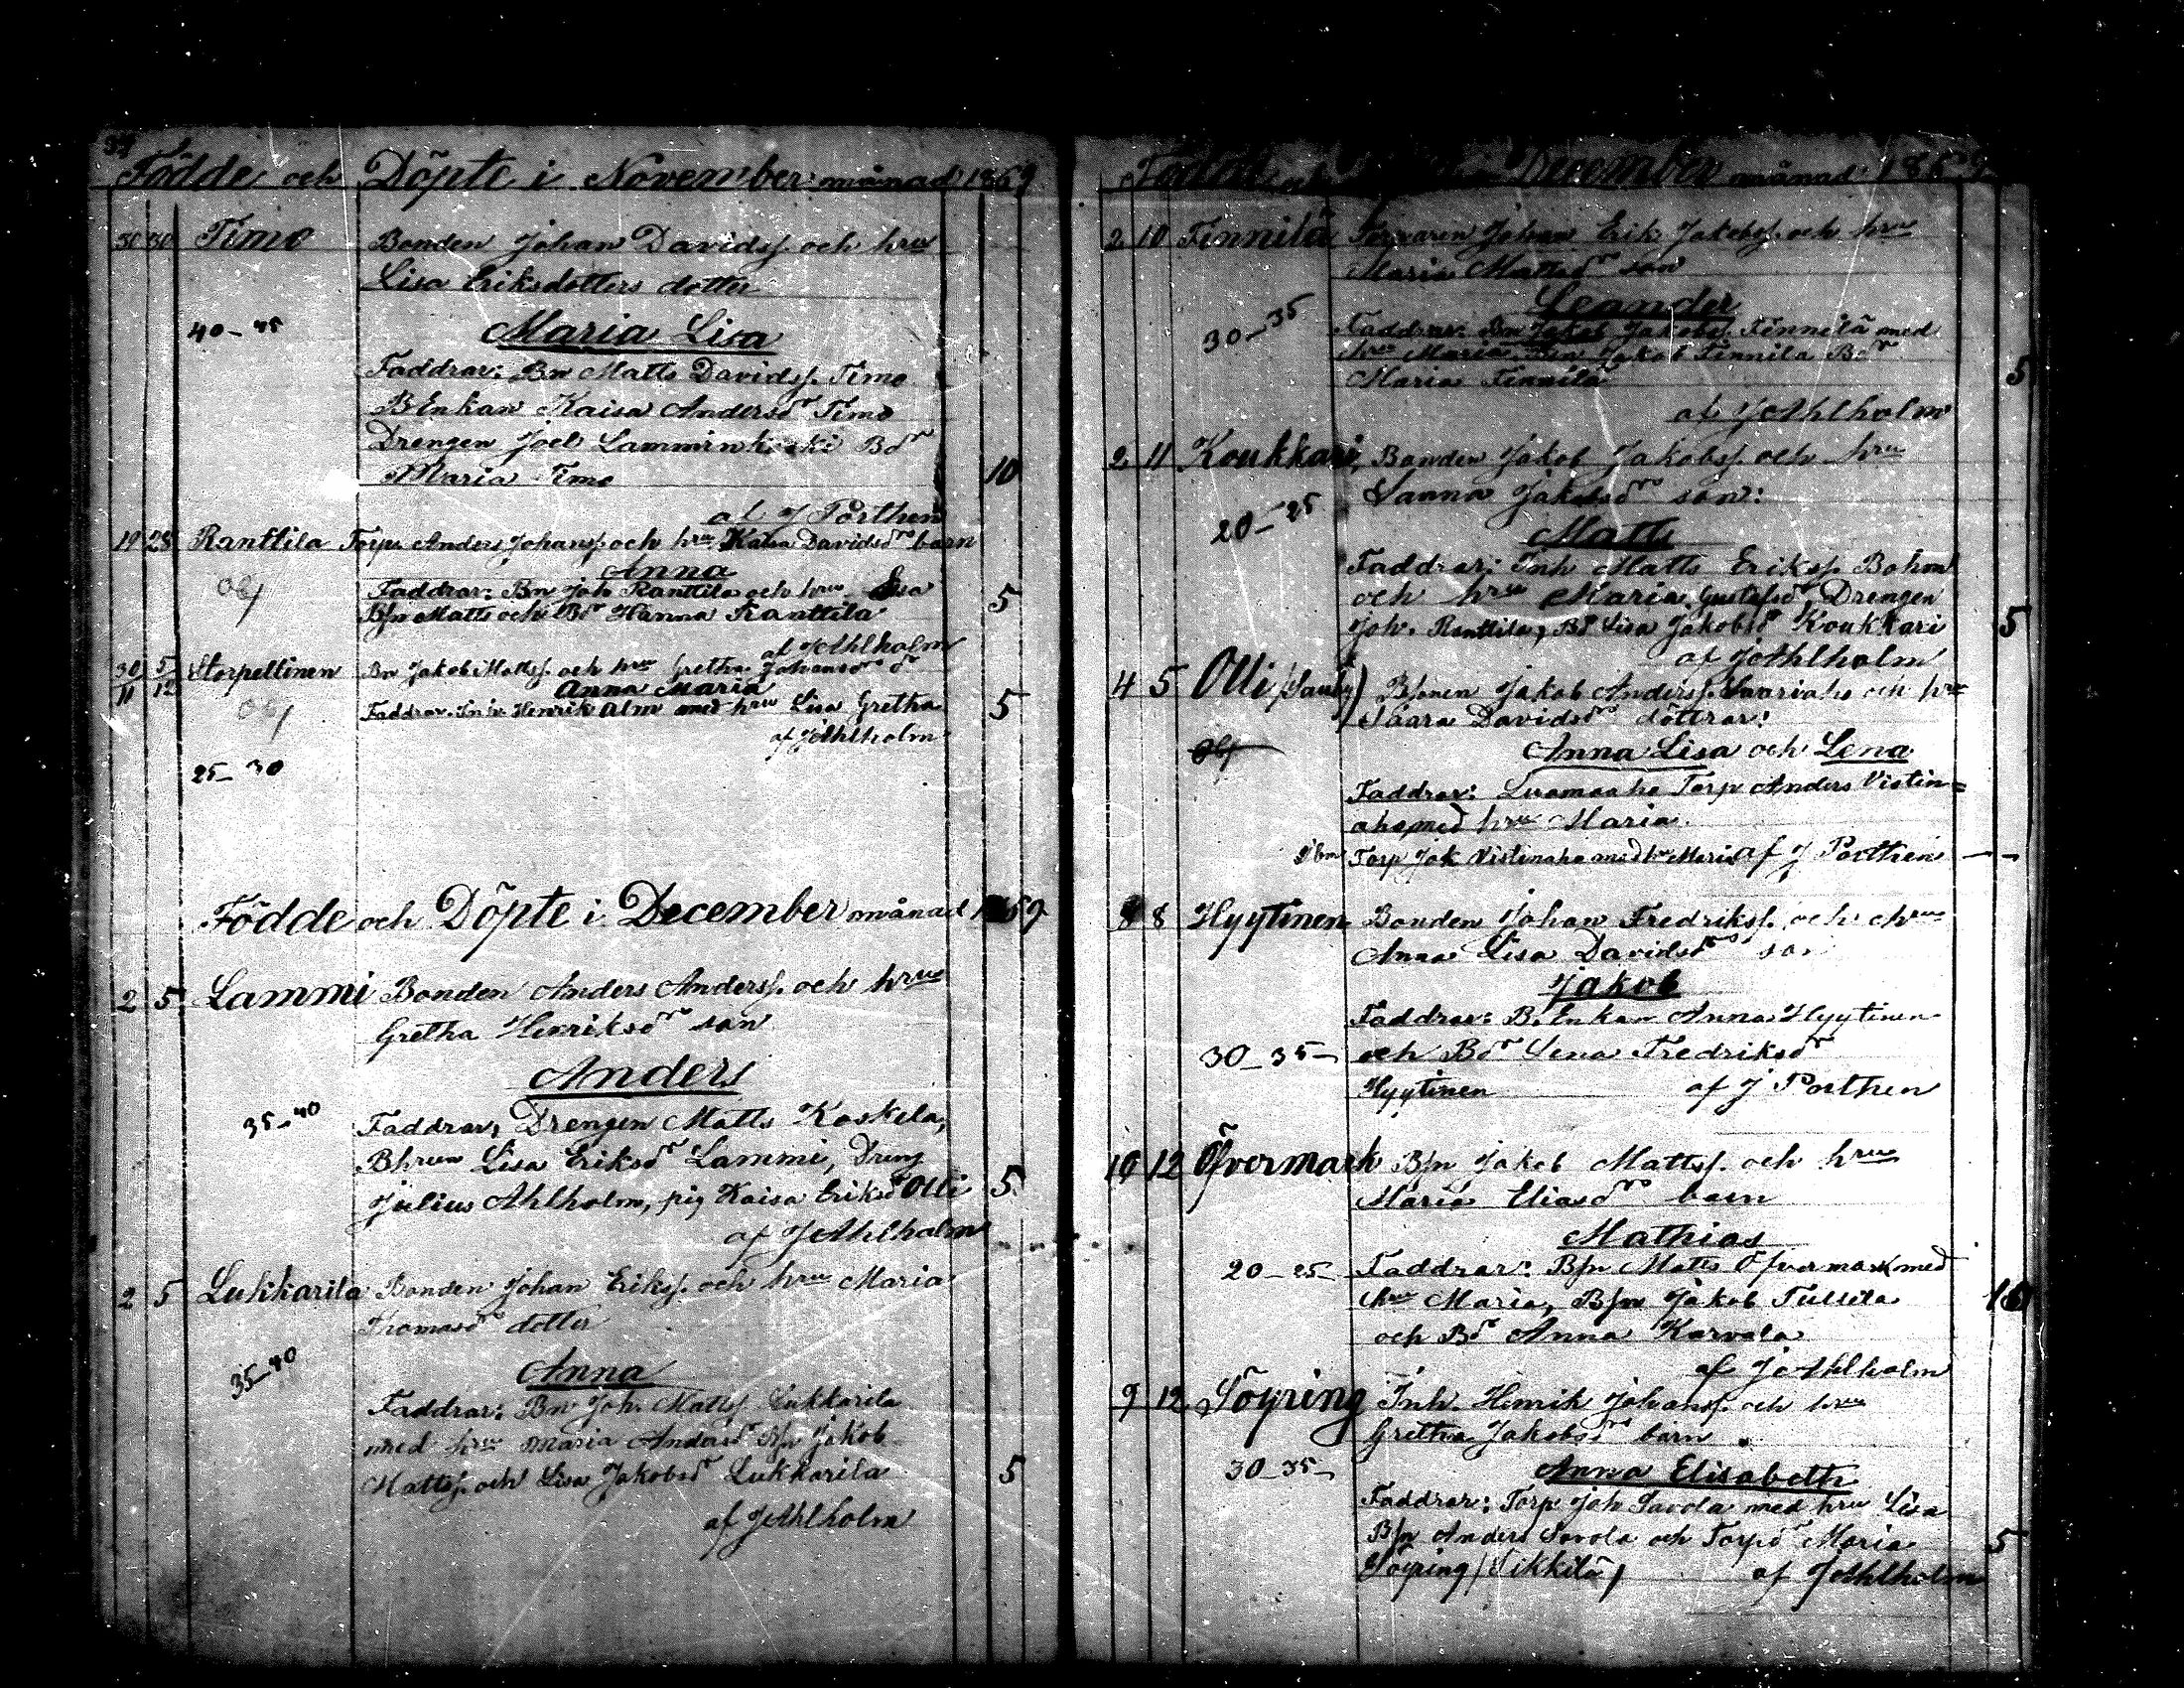 Födde och Döpte i November månad 1869
30 30 Timo Bonden Johan Davidsf. och hru
Lisa Eriksdotters dotter
40-45 Maria Lisa
Faddrar: Bn Matts Davidsf. Timo
B Enkan Kaisa Andersdr Timo
Drengen Joel Bdr
Maria Timo 10
af J Porthen
19 28 Ranttila Torp. Anders Johansf. och hru Kaisa Davidsdrs barn
Anna
Faddrar: Bn Joh Ranttila och hru Lisa
Bsn Matts och Bdr Hanna Ranttila 5
af J Ahlholm
30/11 5/12 Storpellinen Bn Jakob Mattsf. och hru Gretha Johansdrs dr
Anna Maria
Faddrar. Inh. Henrik Alm med hru Lisa Gretha 5
af J Ahlholm
25-30
Födde och Döpte i December månad 1869
2 5 Lammi Bonden Anders Andersf. och hrus
Gretha Henriksdrs son
Anders
35-40 Faddrar, Drengen Matts Koskela,
Bhrun Lisa Eriksdr Lammi, Dreng
Julius Ahlholm, pig Kaisa Eriksdr Olli 5
af J Ahlholm
2 5 Lukkarila Bonden Johan Eriksf. och hru Maria
Thomasdrs dotter
35-40 Anna
Faddrar: Bn Joh. Mattsf. Lukkarila
med hru Maria Andersdr Bsn Jakob
Mattsf. och Lisa Jakobsdr Lukkarila 5
af J Ahlholm
December månad 1869
2 10 Finnilä Johan Erik Jakobsf. och hru
Maria Mattsdrs son
Leander
30-35 Faddrar: Bn Jakob Jakobsf. Finnilä med
hru Maria, Jakob Finnilä Bdr
Maria Finnilä 5
af J Ahlholm
2 11 Koukkari, Bonden Jakob Jakobsf. och hru
Sanna Jakobsdrs son:
20-25 Matts
Faddrar: Inh Matts Eriksf. Bohm
och hru Maria Gustafsdr Drengen
Joh. Ranttila, Bdr Lisa Jakobsdr Koukkari 5
af J Ahlholm
4 5 Olli Bsonen Jakob Andersf. och hru
Saara Davidsdrs döttrar:
Anna Lisa och Lena
Faddrar: Torp Anders Vistin=
aho med hru Maria.
Torp Jak Vistinaho med hr Maria af J Porthen
8 8 Hyytinen Bonden Johan Fredriksf. och hru
Anna Lisa Davidsdrs son
Jakob
Faddrar: B. Enkan Anna Hyytinen
30-35- och Bdr Lena Fredriksdr
Hyytinen af J Porthen
10 12 Öfvermark Bsn Jakob Mattsf. och hru
Maria Eliasdrs barn
Mathias
20-25- Faddrar: Bsn Matts Öfvermark med
hru Maria, Bsn Jakob
och Bdr Anna Karvala
af J Ahlholm
9 12 Söyring Inh. Henrik Johansf. och hru
Gretha Jakobsdrs barn
30-35- Anna Elisabeth
Faddrar: Torp Joh Savola med hru Lisa
Bsn Anders Savola och Torpdr Maria 5
Söyring (Sikkilä) af J Ahlholm